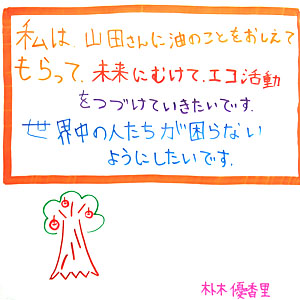 私は、山田さんに油のことをおしえて
もらって、未来にむけて、エコ活動
をつづけていきたいです。
世界中の人たちが困らない
ようにしたいです。
朴木優香里